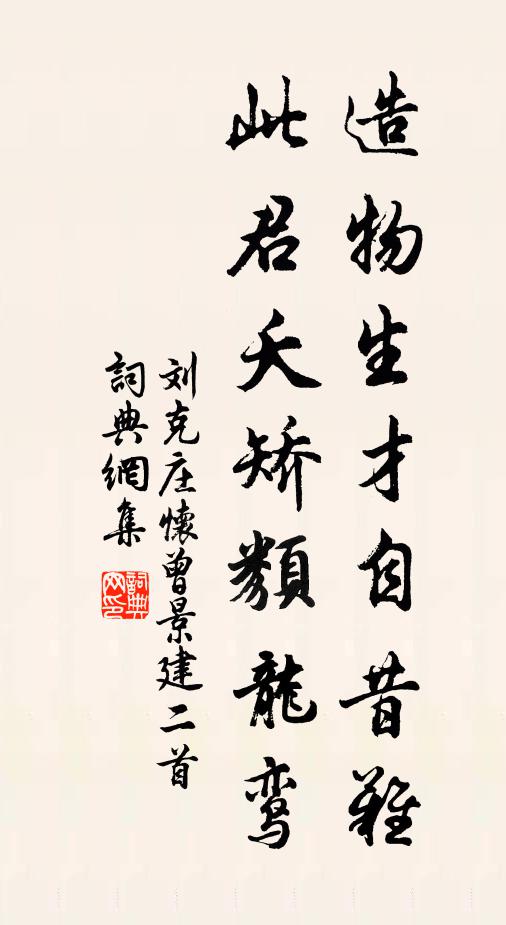 造物生才自昔難
此君夭矯類龍鸾
刘克庄懷曾景建二首
詞典網集
詞典网印